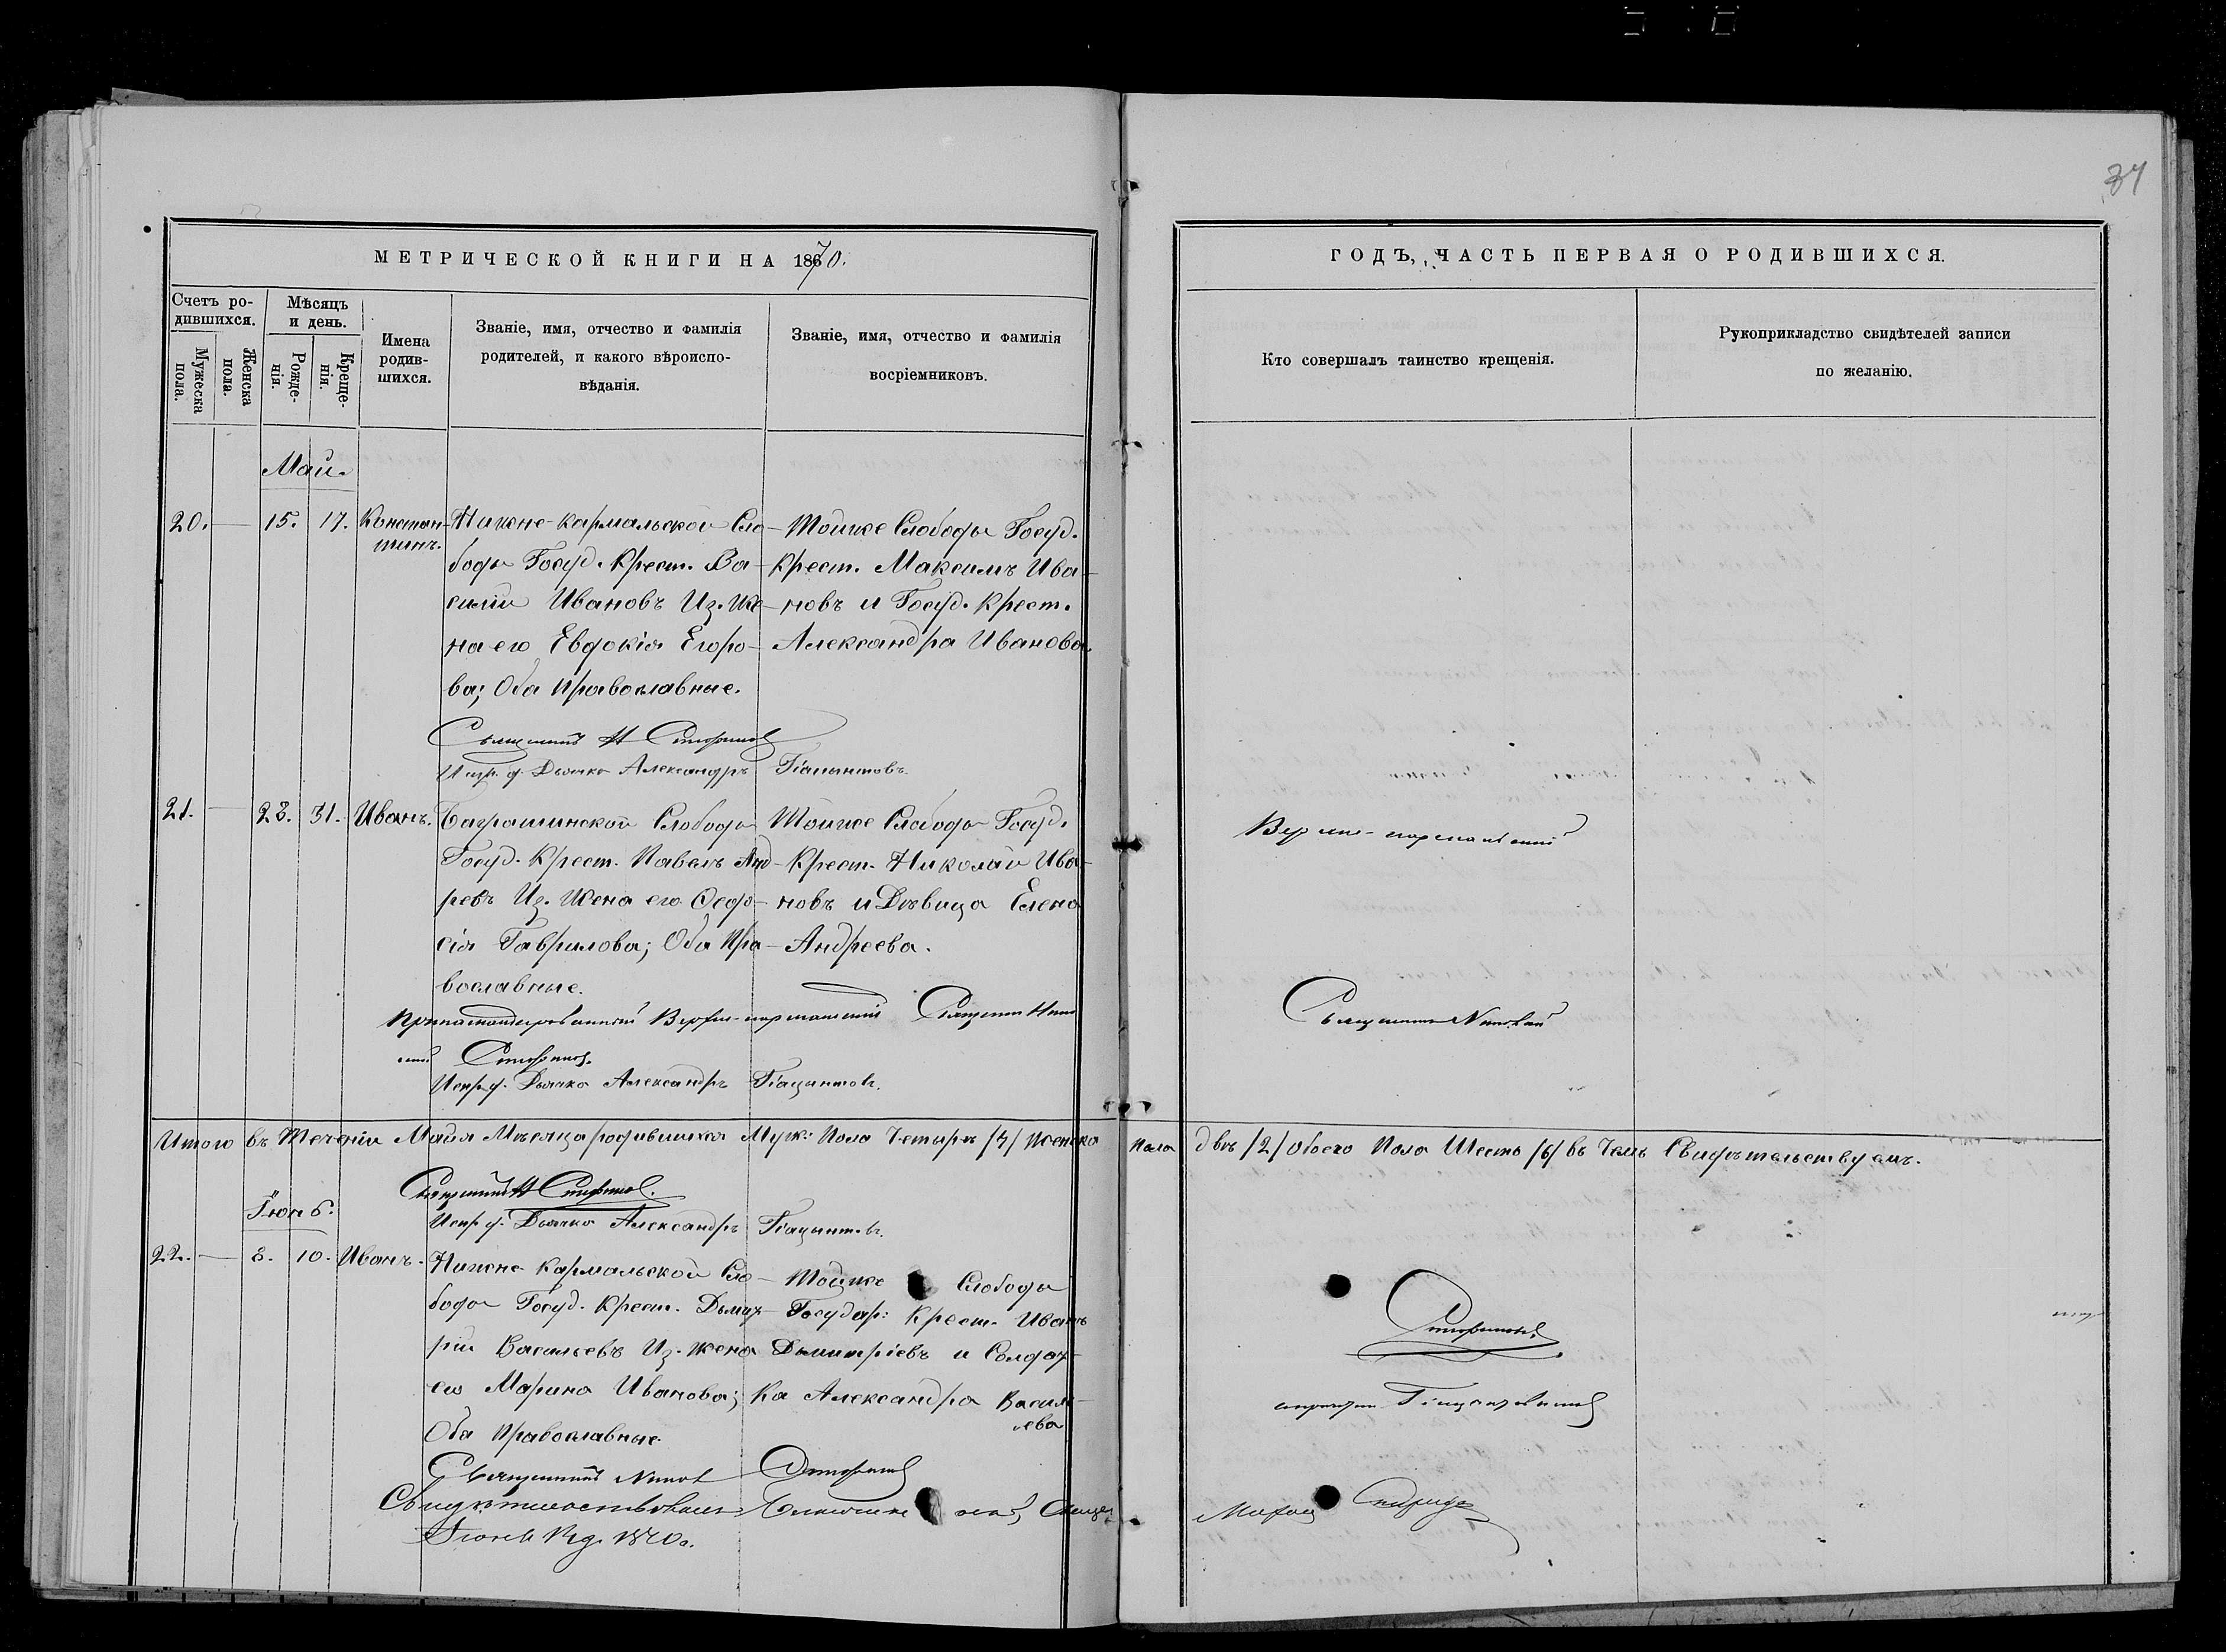 34
МЕТРИЧЕСКОЙ КНИГИ НА 1870.
ГОДЪ, ЧАСТЬ ПЕРВАЯ О РОДИВШИХСЯ.
Счетъ ро-
дившихся.
Мужеска
пола.
Женска
пола.
Мѣсяцъ
и день.
Рожде-
нія.
Креще-
нія.
Имена
родив-
шихся.
Званіе, имя, отчество и фамилія
родителей, и какого вѣроиспо-
вѣданія.
Званіе, имя, отчество и фамилія
воспріемниковъ.
Кто совершалъ таинство крещенія.
Рукоприкладство свидѣтелей записи
по желанію.
Май.
20. — 15. 17. Констан-
тинъ.
Нижне-кармальской Сло-
боды Госуд. Крест. Ва-
силій Ивановъ Из. Же-
на его Евдокія Егоро-
ва; Оба православные.
Тойже Слободы Госуд.
Крест. Максимъ Ива-
новъ и Госуд. Крест.
Александра Иванова.
Священникъ Н
Испр. д. Дьячка Александръ Гіацынтовъ.
21. — 23. 31. Иванъ.
Слободы
Госуд. Крест. Павелъ Анд-
ревъ Из. Жена его Феодо-
сія Гаврилова; Оба Пра-
вославные.
Тойже Слободы Госуд.
Крест. Николай Ива-
новъ и Дѣвица Елена
Андреева.
Священникъ
Испр. д. Дьячка Александръ Гіацынтовъ.
Священникъ Николай
Итого въ Теченіи Майя Мѣсяца родившихся Муж: Пола Четыре /4/ Женска Пола двѣ /2/ Обоего Пола Шесть /6/ въ Чемъ Свидѣтельствуемъ.
Священникъ Н
Испр. д. Дьячка Александръ Гіацынтовъ.
Іюнь.
22. — 8. 10. Иванъ.
Нижне Кармальской Сло-
боды Госуд. Крест. Дьмит-
рій Васильевъ Из. жена
его Марина Иванова;
Оба Православные.
Тойже Слободы
Государ: Крест. Иванъ
Дьмитріевъ и Солдат-
ка Александра Василь-
ева
Священникъ
Свидѣтельствовалъ
1870.